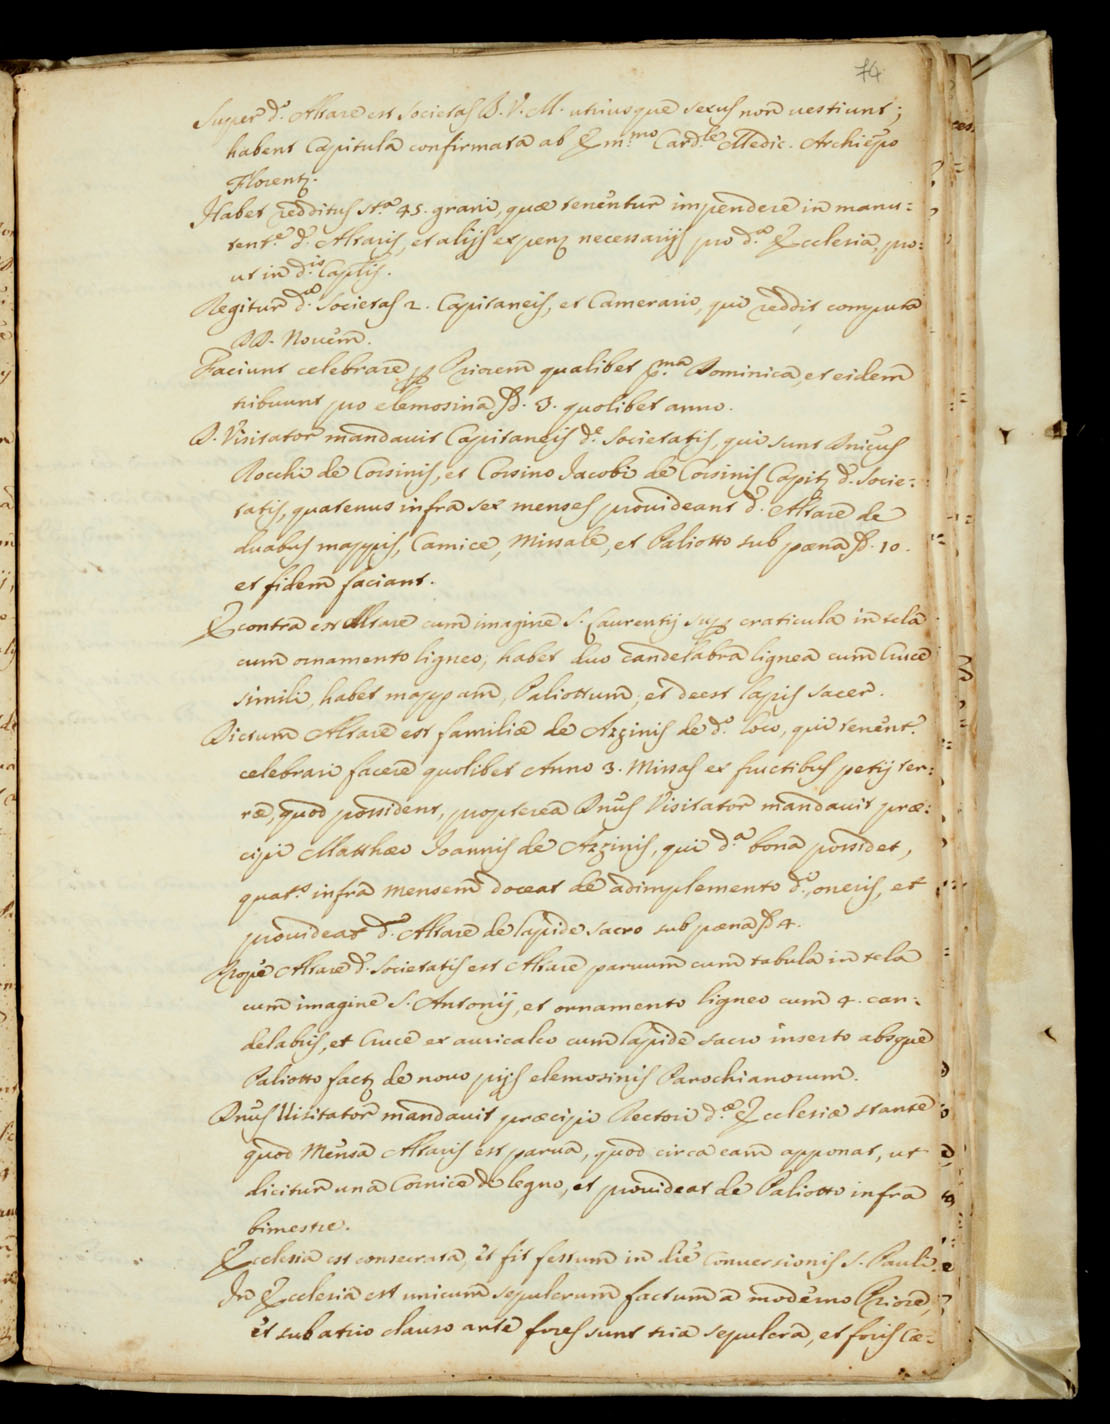 74
Super d.º Altare est Societas B. V. M. utriusque sexus non uestiunt;
habent Capitula confirmata ab Em.mo Card.le Medic. Archiepo
Florent.
Habet redditus st.a 45. grani, quæ tenentur impendere in manu=
tent.e d. Altaris, et alijs expens necessarijs pro d.a Ecclesia, pro=
ut in d.is Cap.lis.
Regitur d.a Societas 2. Capitaneis, et Camerario, qui reddit computa
DD. Nouem.
Faciunt celebrare per Priorem qualibet p.ma Dominica, et eidem
tribuunt pro elemosina ₰. 3. quolibet anno.
D. Visitator mandauit Capitaneis d.e Societatis, qui sunt Dnicus
Rocchi de Corsinis, et Corsino Jacobi de Corsinis Capit. d. Socie=
tatis, quatenus infra sex menses prouideant d. Altare de
duabus mappis, Camice, Missale, et Paliotto sub pœna ₰. 10.
et fidem faciant.
E contra est Altare cum imagine S. Laurentij super craticula in tela
cum ornamento ligneo, habet duo candelabra lignea cum Cruce
simili, habet mappam, Paliottum, et deest lapis sacer.
Dictum Altare est familiæ de Azzinis de d.º loco, qui tenent.r
celebrari facere quolibet Anno 3. Missas ex fructibus petij ter=
ræ, quod possident, propterea Dnus Visitator mandauit præ=
cipi Matthæo Joannis de Azzinis, qui d.a bona possidet,
quat.s infra mensem doceat de adimplemento d. oneris, et
prouideat d. Altare de lapide sacro sub pœna ₰ 4.
Prope Altare d. Societatis est Altare paruum cum tabula in tela
cum imagine S. Antonij, et ornamento ligneo cum 4. can=
delabris, et Cruce ex auricalco cum lapide sacro inserto absque
Paliotto fact. de nouo pijs elemosinis Parochianorum.
Dnus Uisitator mandauit præcipi Rectori d.æ Ecclesiæ stante
quod Mensa Altaris est parua, quod circa eam apponat, ut
dicitur una Cornice di legno, et prouideat de Paliotto infra
bimestre.
Ecclesia est consecrata, et fit festum in die Conuersionis S. Pauli.
In Ecclesia est unicum sepulcrum factum a moderno Priore,
et sub atrio clauso ante fores sunt tria sepulcra, et foris Cæ=